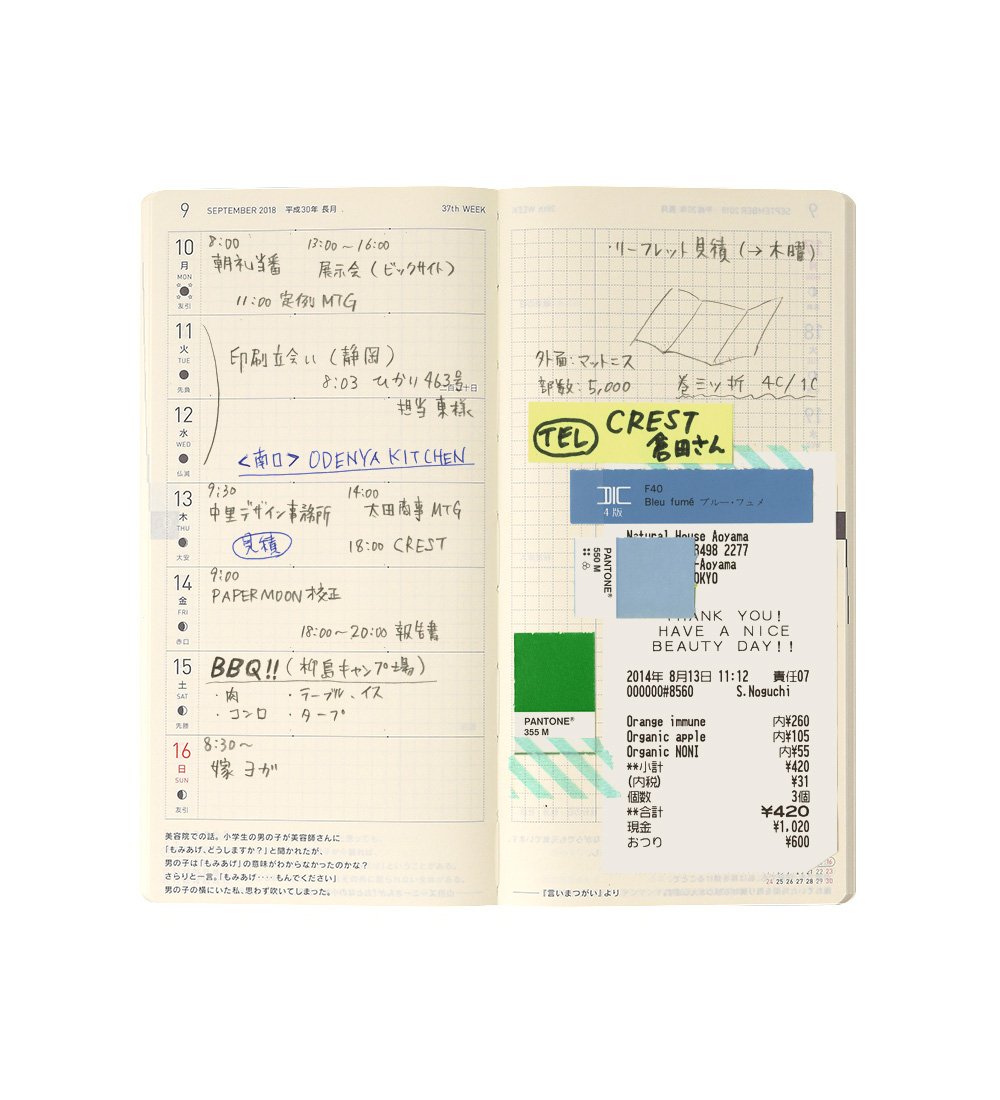 9 SEPTEMBER 2018 平成30年 長月 37th WEEK
10 月 MON 友引
8:00 13:00～16:00
朝礼当番 展示会（ビックサイト）
11:00 定例MTG
11 火 TUE 先負
印刷立会い（静岡）
8:03 ひかり463号
二百二十日
担当 東様
12 水 WED 仏滅
<南口> ODENYA KITCHEN
13 木 THU 大安
9:30 14:00
中里デザイン事務所 太田商事 MTG
見積 18:00 CREST
14 金 FRI 赤口
9:00
PAPERMOON 校正
18:00～20:00 報告書
15 土 SAT 先勝
BBQ!!（柳島キャンプ場）
・肉 ・テーブル、イス
・コンロ ・タープ
16 日 SUN 友引
8:30～
嫁 ヨガ
美容院での話。小学生の男の子が美容師さんに
「もみあげ、どうしますか？」と聞かれたが、
男の子は「もみあげ」の意味がわからなかったのかな？
さらりと一言。「もみあげ‥‥もんでください」
男の子の横にいた私、思わず吹いてしまった。
・リーフレット見積（→木曜）
外面：マットニス
部数：5,000 巻三ツ折 4C/1C
TEL CREST
倉田さん
DIC 4版
F40
Bleu fumé ブルー・フュメ
PANTONE®
550 M
Natural House Aoyama
3498 2277
-Aoyama
TOKYO
THANK YOU!
HAVE A NICE
BEAUTY DAY!!
2014年 8月13日 11:12 責任07
000000#8560 S.Noguchi
Orange immune 内¥260
Organic apple 内¥105
Organic NONI 内¥55
**小計 ¥420
(内税) ¥31
個数 3個
**合計 ¥420
現金 ¥1,020
おつり ¥600
PANTONE®
355 M
『言いまつがい』より
24 25 26 27 28 29 30